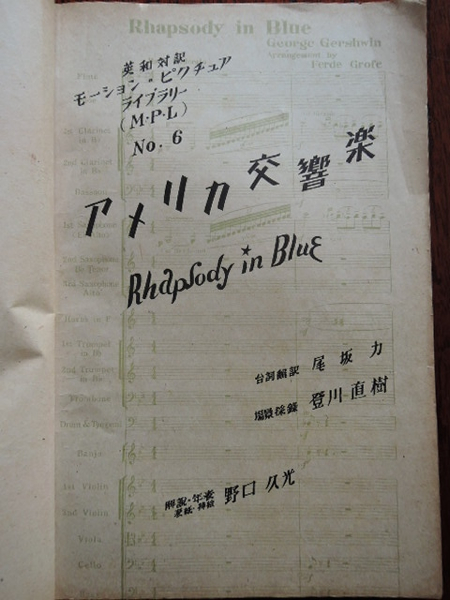 Rhapsody in Blue
George Gershwin
Arrangement by
Ferde Grofé
英和対訳
モーション・ピクチュア
ライブラリー
(M・P・L)
No. 6
アメリカ交響楽
Rhapsody in Blue
台詞翻訳 尾坂力
場景採録 登川直樹
解説・年表
野口久光
Flute
1st Clarinet
in Bb
2nd Clarinet
in Bb
Bassoon
2nd Saxophone
Bb Tenor
3rd Saxophone
Alto
1st Trumpet
in Bb
2nd Trumpet
in Bb
Trombone
Banjo
1st Violin
2nd Violin
Viola
Cello